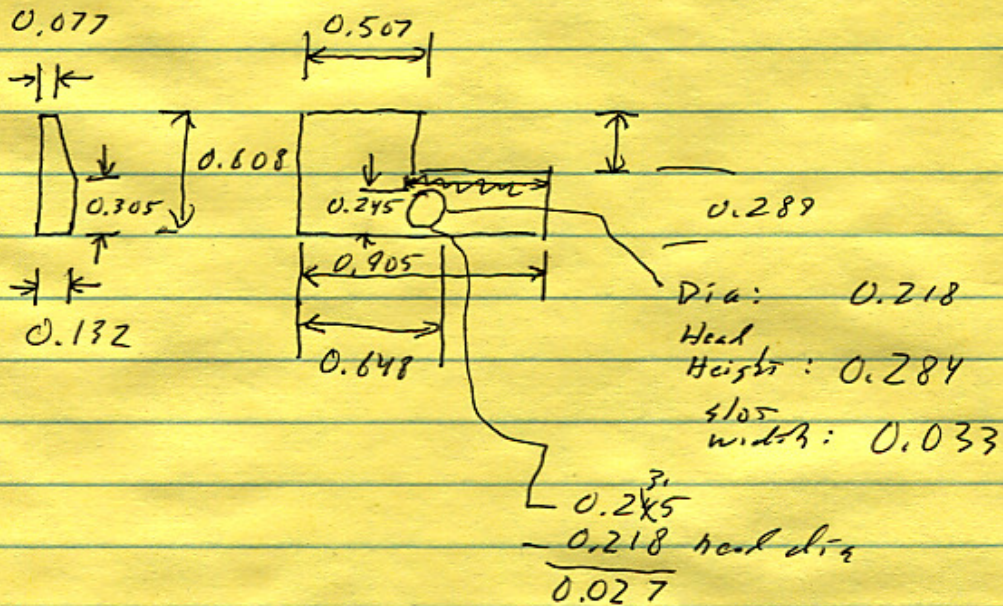 0.077 0.507
0.608
0.305 0.245 0.289
0.905
Dia: 0.218
0.132 Head
0.648 Height: 0.284
slot
width: 0.033
3.
0.245
- 0.218 head dia
0.027